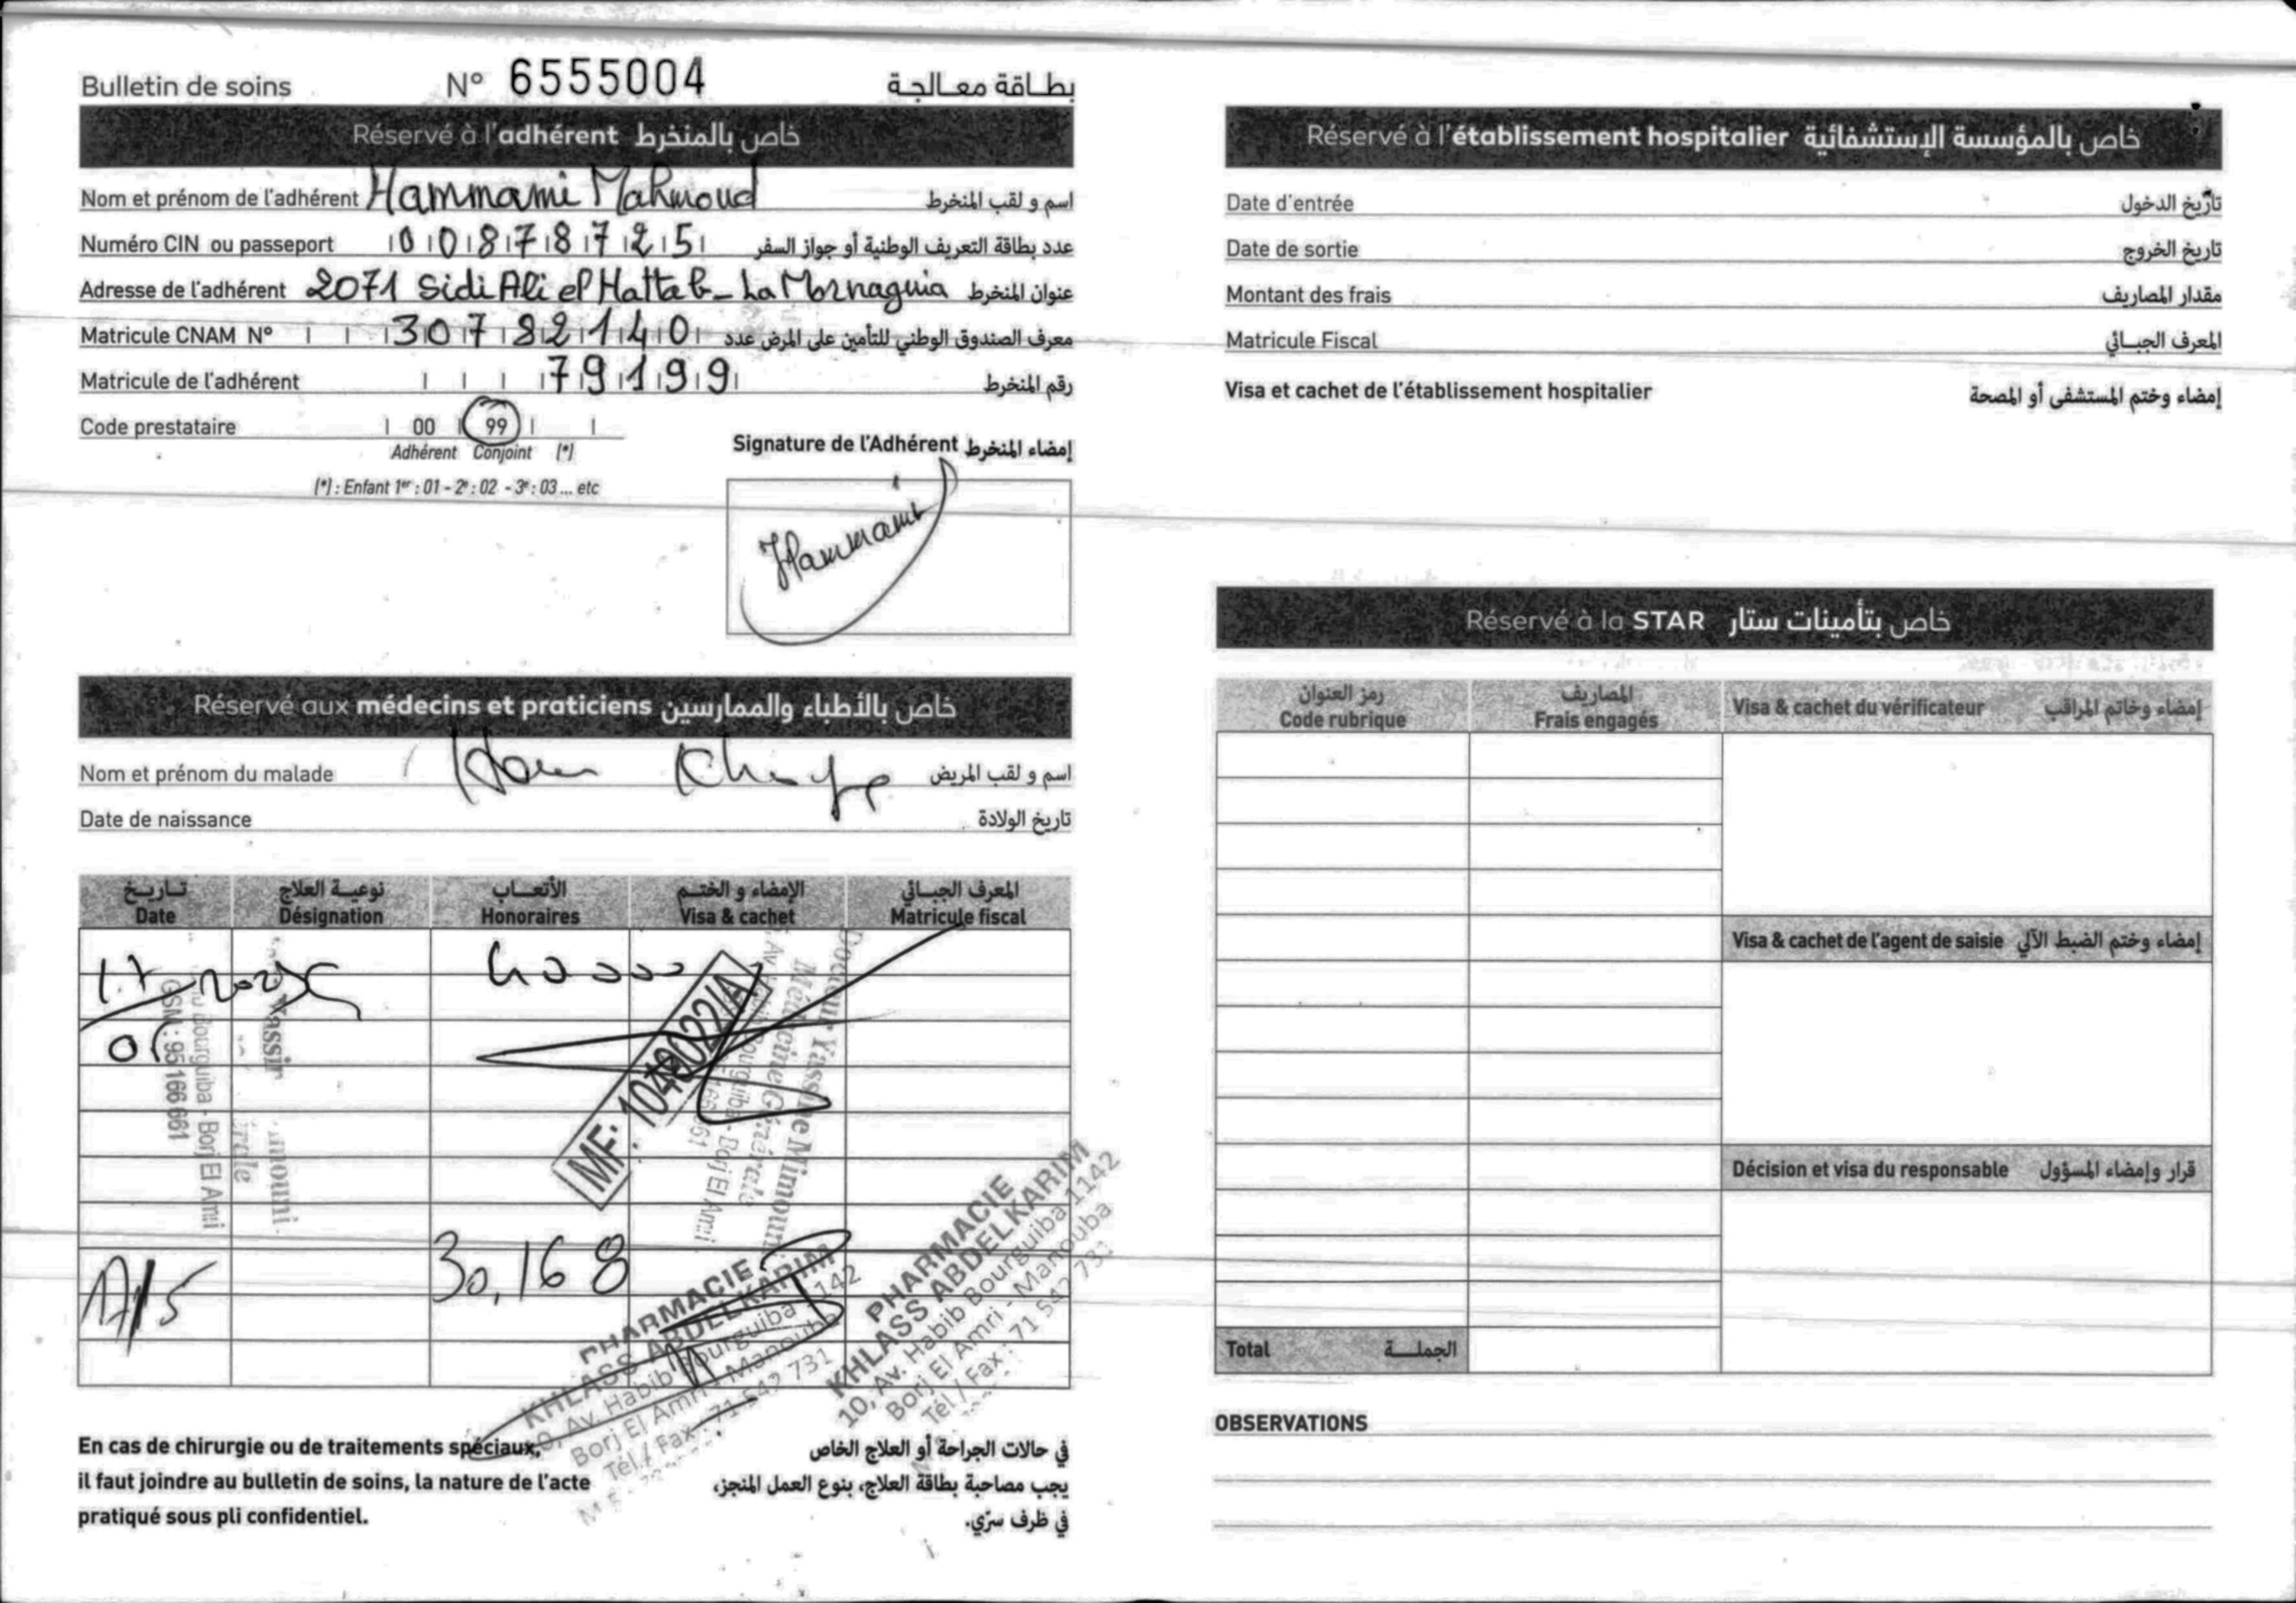 Bulletin de soins N° 6555004 بطاقة معالجة
Réservé à l'adhérent خاص بالمنخرط
Nom et prénom de l'adhérent Hammami Mahmoud اسم و لقب المنخرط
Numéro CIN ou passeport 00878725 عدد بطاقة التعريف الوطنية أو جواز السفر
Adresse de l'adhérent 2071 Sidi Ali el Hattab - La Mornaguia عنوان المنخرط
Matricule CNAM N° 307821140 معرف الصندوق الوطني للتأمين على المرض عدد
Matricule de l'adhérent 79199 رقم المنخرط
Code prestataire 00 99
Adhérent Conjoint (*)
(*) : Enfant 1er : 01 - 2e : 02 - 3e : 03 ... etc
Signature de l'Adhérent إمضاء المنخرط
Hammami
Réservé aux médecins et praticiens خاص بالأطباء والممارسين
Nom et prénom du malade اسم و لقب المريض
Date de naissance تاريخ الولادة
تاريخ نوعية العلاج الأتعاب الإمضاء و الختم المعرف الجبائي
Date Désignation Honoraires Visa & cachet Matricule fiscal
Docteur Yassine Mimouni
Médecine Générale
Bourguiba - Borj El Amri
GSM : 95 166 661
30,168
PHARMACIE
KHLASS ABDELKARIM
10, Av. Habib Bourguiba 1142
Borj El Amri - Manouba
Tél / Fax : 71 542 731
PHARMACIE
KHLASS ABDELKARIM
10, Av. Habib Bourguiba 1142
Borj El Amri - Manouba
Tél / Fax : 71 542 731
En cas de chirurgie ou de traitements spéciaux,
il faut joindre au bulletin de soins, la nature de l'acte
pratiqué sous pli confidentiel.
في حالات الجراحة أو العلاج الخاص
يجب مصاحبة بطاقة العلاج، بنوع العمل المنجز،
في ظرف سرّي.
Réservé à l'établissement hospitalier خاص بالمؤسسة الإستشفائية
Date d'entrée تاريخ الدخول
Date de sortie تاريخ الخروج
Montant des frais مقدار المصاريف
Matricule Fiscal المعرف الجبائي
Visa et cachet de l'établissement hospitalier إمضاء وختم المستشفى أو المصحة
Réservé à la STAR خاص بتأمينات ستار
رمز العنوان المصاريف
Code rubrique Frais engagés Visa & cachet du vérificateur إمضاء وخاتم المراقب
Visa & cachet de l'agent de saisie إمضاء وختم الضبط الآلي
Décision et visa du responsable قرار وإمضاء المسؤول
Total الجملة
OBSERVATIONS